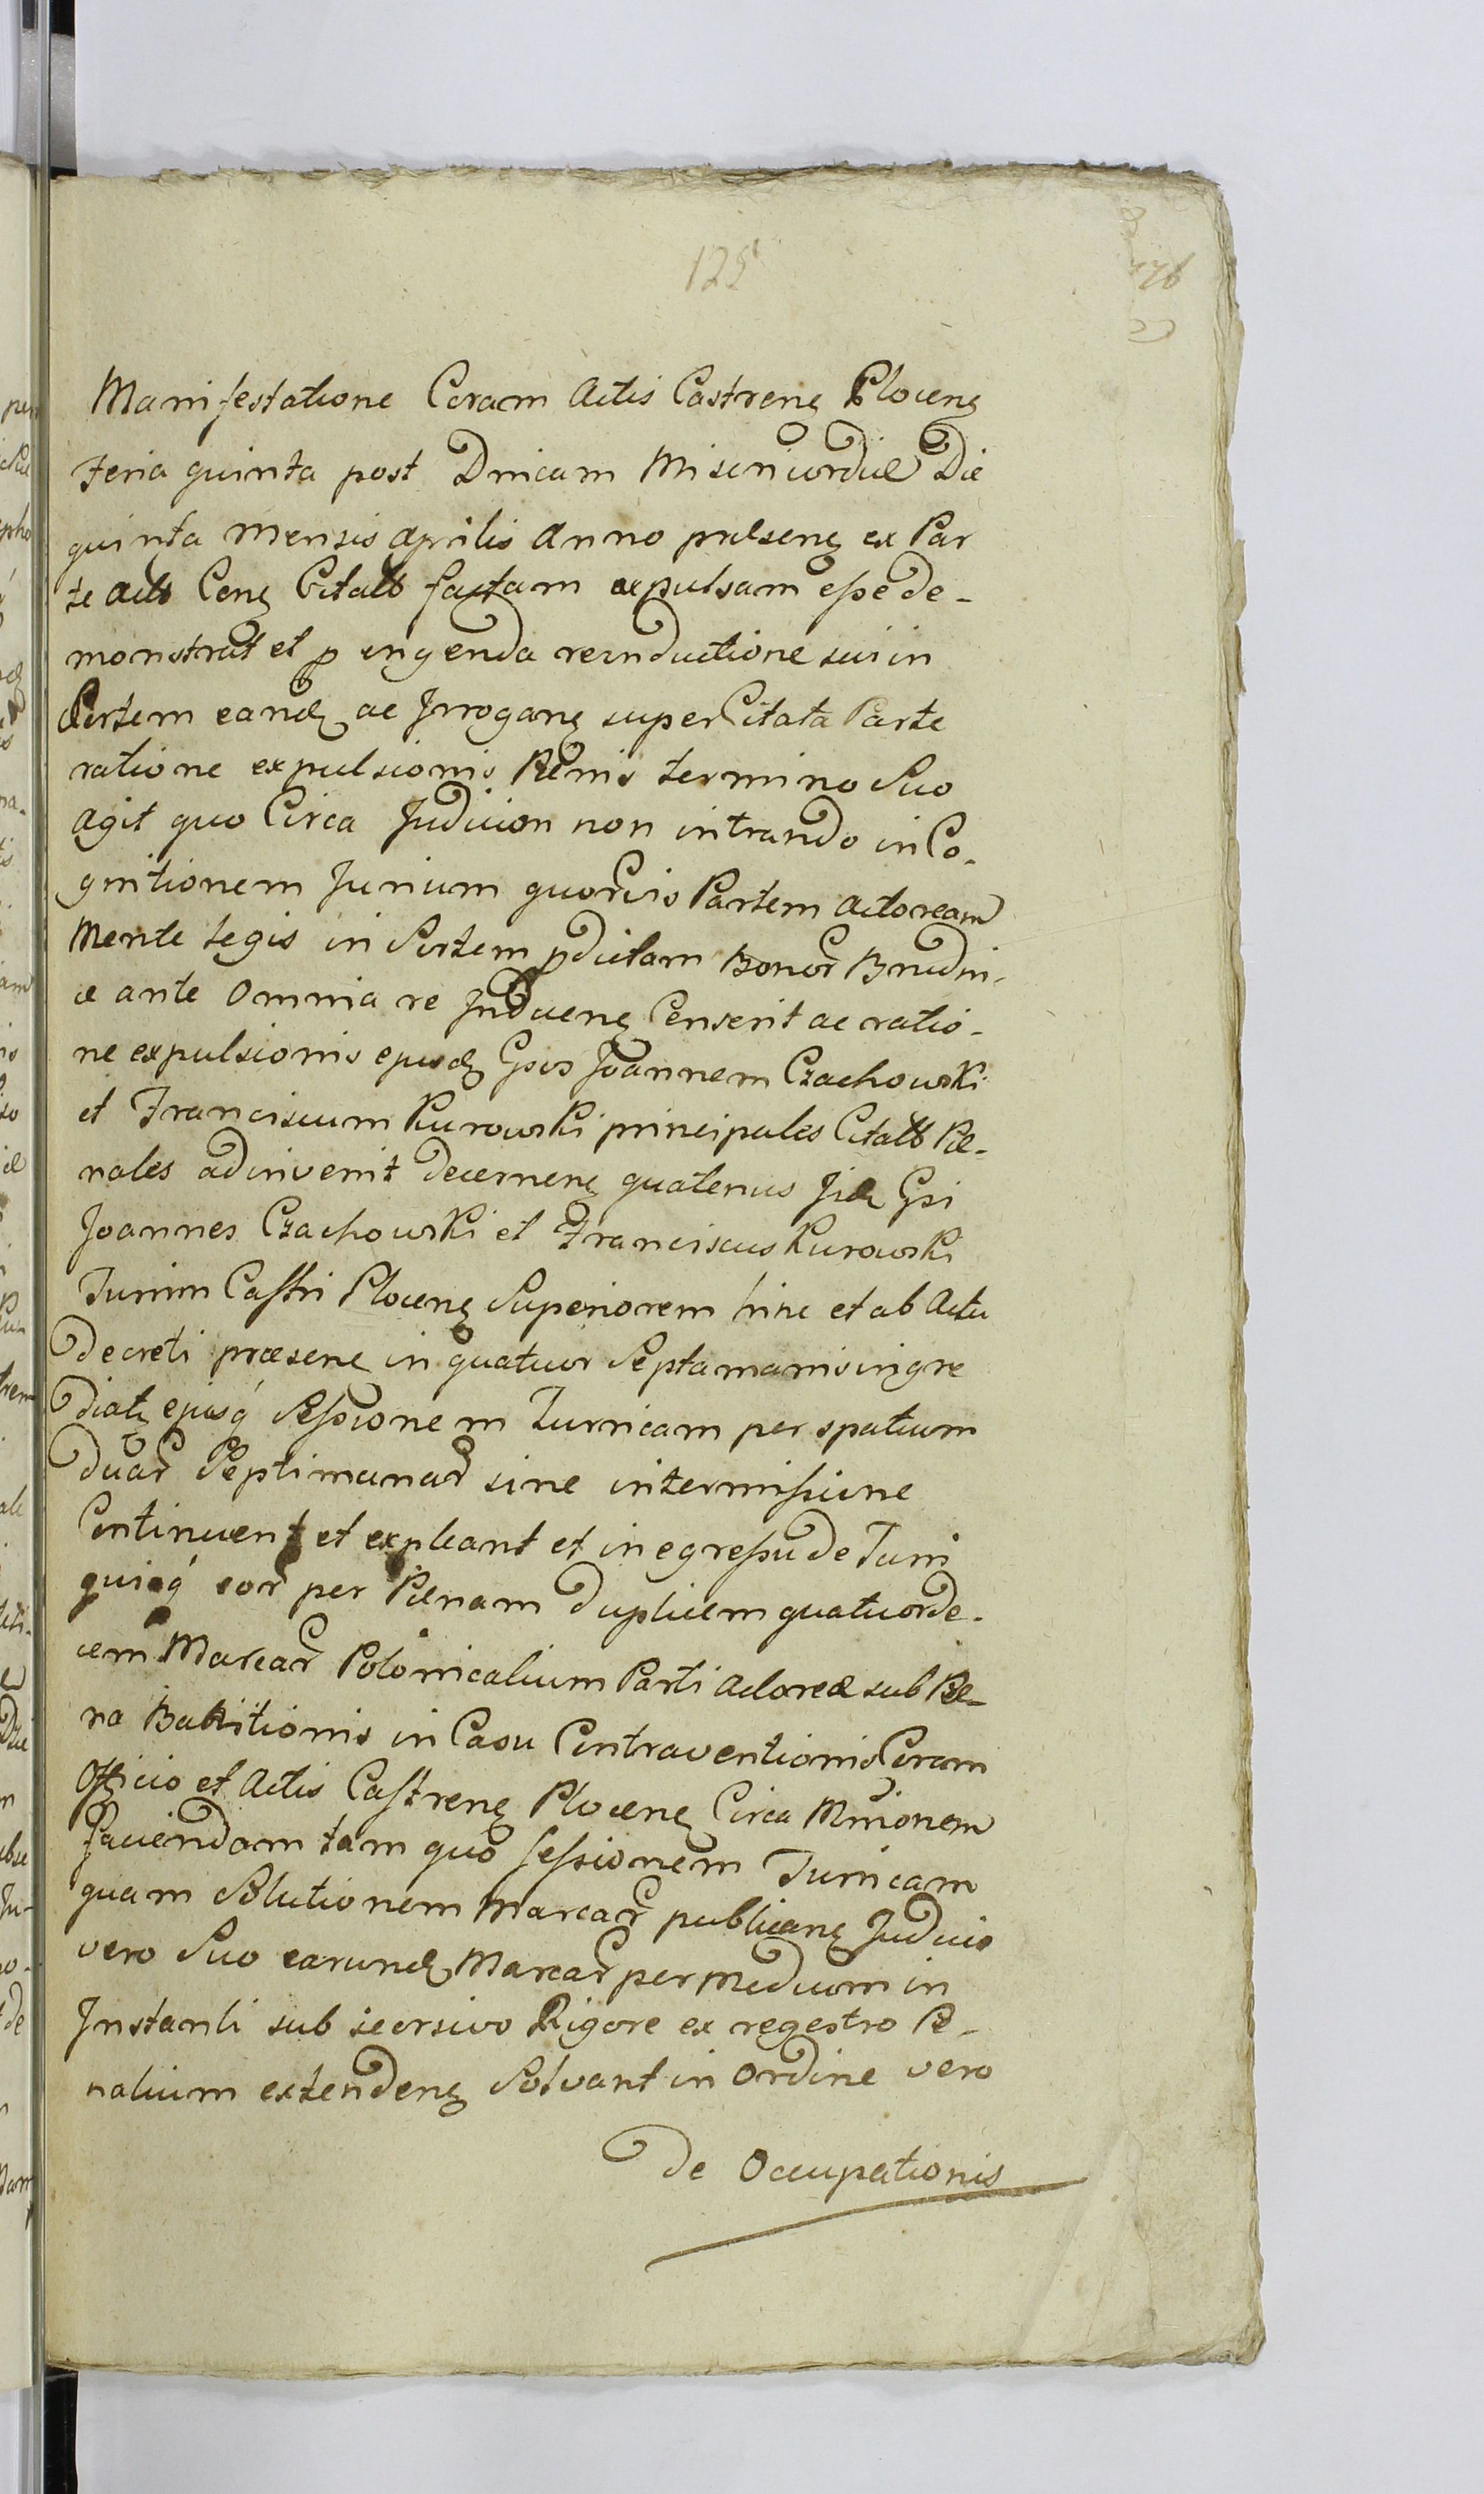 125
Manifestatione Coram Actis Castrenę Plocenę
Feria quinta post Dnicam Misericordiæ Die
quinta Mensis Aprilis Anno præsenę ex Par
te Citatt factam expulsam esse de-
monstrat et p reinductione sui in
Sortem eandę ac Irroganę super Citata Parte
ratione expulsionis Pœnis termino Suo
agit quo Circa Judicion non intrando in Co-
gnitionem Jurium quorvis Partem actoream
Mente legis in Sortem pdictam Bonor Brudni-
æ ante Omnia re Inducenę Censerit ac ratio-
ne expulsionis ejusdę Gsos Joannem Czachowski
et Franciscum Kurowski principales Citatt Pœ-
nales adinvenit decernenę quatenus Jidę Gsi
Joannes Czachowski et Franciscus Kurowski
Turrim Castri Plocenę Superiorem hinc et ab Actu
Decreti præsenę in quatuor Septamanis ingre
diatę ejusq́ Sessionem Turricam per spatium
duar Septimanar sine intermissione
Continuent et expleant et in egressu de Turri
quisq́ eor per Pœnam duplicem quatuorde-
cem Marcar Polonicalium Parti Actoreæ sub Pœ-
na Bannitionis in Casu Contraventionis Coram
Officio et Actis Castrenę Plocenę Circa Mnionem
faciendam tam quo sessionem Turricam
quam Solutionem Marcar publicanę Judicio
vero Suo earundę Marcar per Medium in
Instanti sub seorsivo Rigore ex regestro Pœ-
nalium extendenę Solvant in Ordine vero
de Occupationis